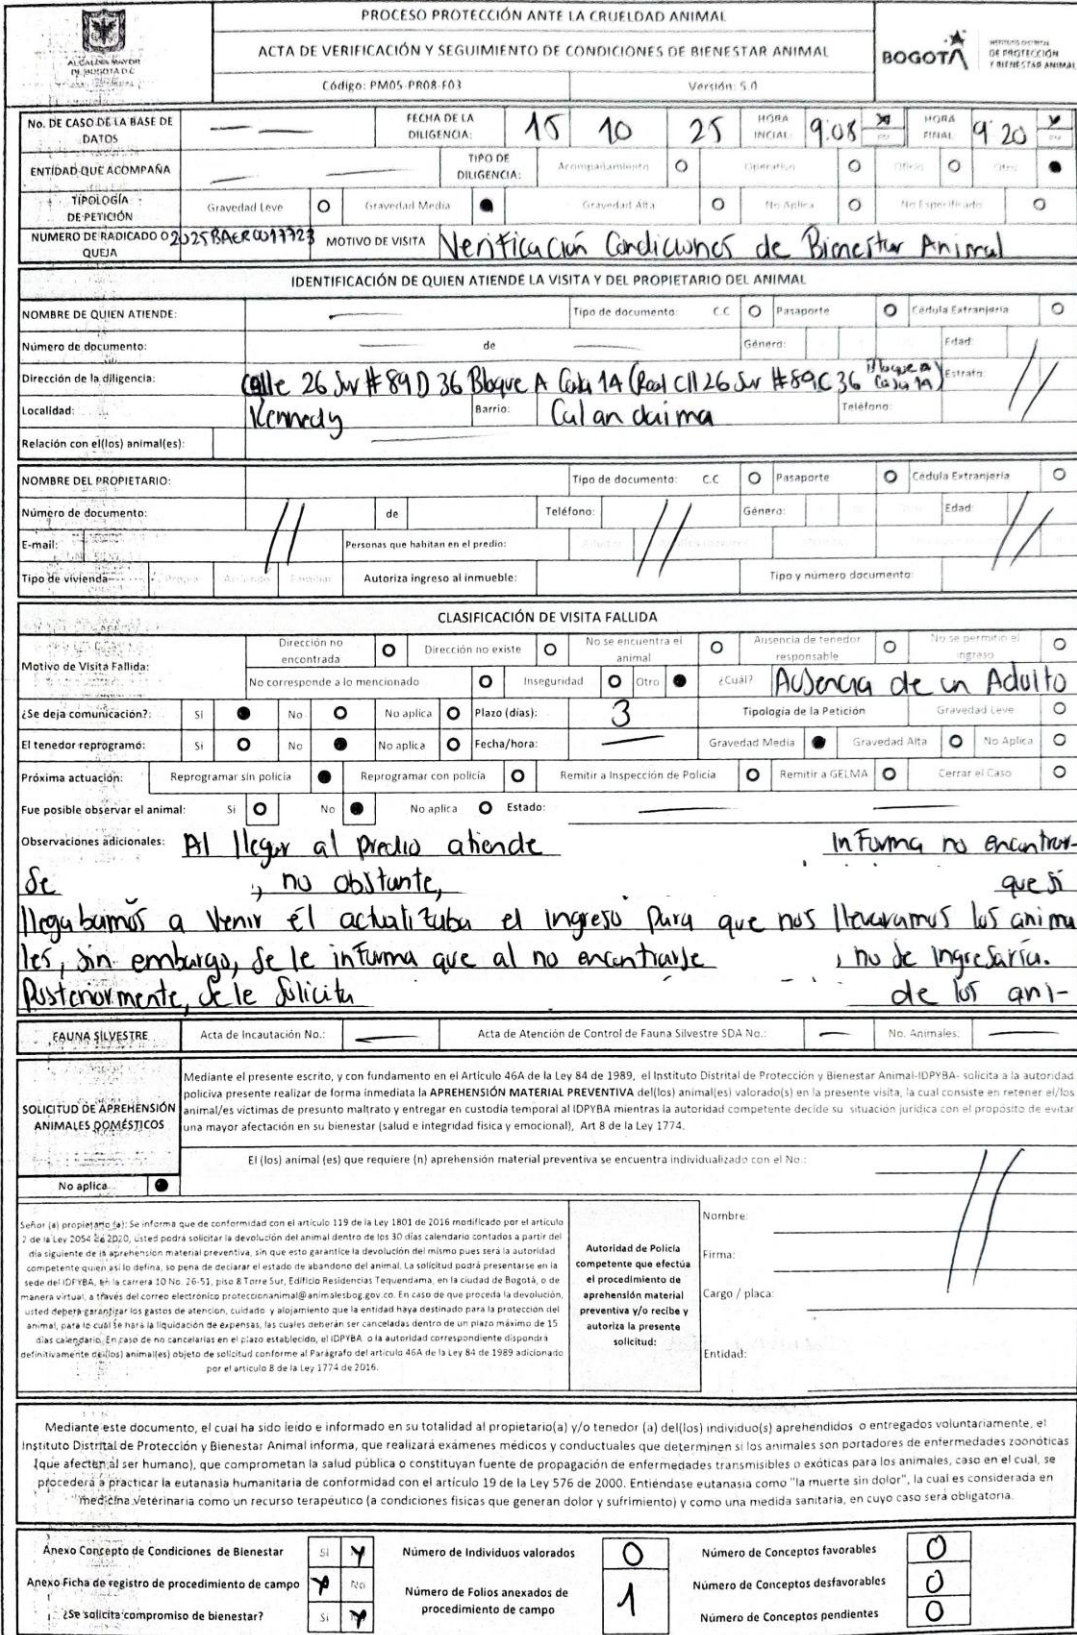 PROCESO PROTECCIÓN ANTE LA CRUELDAD ANIMAL
ALCALDÍA MAYOR
DE BOGOTÁ D.C.
ACTA DE VERIFICACIÓN Y SEGUIMIENTO DE CONDICIONES DE BIENESTAR ANIMAL
BOGOTÁ
INSTITUTO DISTRITAL
DE PROTECCIÓN
Y BIENESTAR ANIMAL
Código: PM05-PR08-F03 Versión: 5.0
No. DE CASO DE LA BASE DE DATOS FECHA DE LA DILIGENCIA: 15 10 25 HORA INCIAL: 9:08 HORA FINAL: 9 20
ENTIDAD QUE ACOMPAÑA TIPO DE DILIGENCIA: Acompañamiento Operativo Oficio Otro
TIPOLOGÍA DE PETICIÓN Gravedad Leve Gravedad Media Gravedad Alta No Aplica No Especificado
NUMERO DE RADICADO O QUEJA MOTIVO DE VISITA Verificación Condiciones de Bienestar Animal
IDENTIFICACIÓN DE QUIEN ATIENDE LA VISITA Y DEL PROPIETARIO DEL ANIMAL
NOMBRE DE QUIEN ATIENDE: Tipo de documento: C.C Pasaporte Cédula Extranjeria
Número de documento: de Género: Edad:
Dirección de la diligencia: Calle 26 Sur # 89 D 36 Bloque A Casa 14 (Real Cll 26 Sur # 89C 36 Bloque A Casa 14) Estrato:
Localidad: Kennedy Barrio: Calandaima Teléfono:
Relación con el(los) animal(es):
NOMBRE DEL PROPIETARIO: Tipo de documento: C.C Pasaporte Cédula Extranjeria
Número de documento: // de Teléfono: // Género: Edad: //
E-mail: Personas que habitan en el predio:
Tipo de vivienda Propia Arriendo Familiar Autoriza ingreso al inmueble: Tipo y número documento:
CLASIFICACIÓN DE VISITA FALLIDA
Motivo de Visita Fallida: Dirección no encontrada Dirección no existe No se encuentra el animal Ausencia de tenedor responsable No se permitio el ingreso
No corresponde a lo mencionado Inseguridad Otro ¿Cuál? Ausencia de un Adulto
¿Se deja comunicación?: Sí No No aplica Plazo (días): 3 Tipología de la Petición Gravedad Leve
El tenedor reprogramó: Sí No No aplica Fecha/hora: Gravedad Media Gravedad Alta No Aplica
Próxima actuación: Reprogramar sin policía Reprogramar con policía Remitir a Inspección de Policía Remitir a GELMA Cerrar el Caso
Fue posible observar el animal: Si No No aplica Estado:
Observaciones adicionales: Al llegar al predio atiende informa no encontrar-
se , no obstante, que si
llegabamos a venir él el ingreso para que nos llevaramos los anima
les, sin embargo, se le informa que al no encontrarse , no se ingresaría.
Posteriormente, se le solicita de los ani-
FAUNA SILVESTRE Acta de Incautación No.: Acta de Atención de Control de Fauna Silvestre SDA No.: No. Animales:
SOLICITUD DE APREHENSIÓN ANIMALES DOMÉSTICOS
Mediante el presente escrito, y con fundamento en el Artículo 46A de la Ley 84 de 1989, el Instituto Distrital de Protección y Bienestar Animal-IDPYBA- solicita a la autoridad
policiva presente realizar de forma inmediata la APREHENSIÓN MATERIAL PREVENTIVA del(los) animal(es) valorado(s) en la presente visita, la cual consiste en retener el/los
animal/es victimas de presunto maltrato y entregar en custodia temporal al IDPYBA mientras la autoridad competente decide su situación jurídica con el propósito de evitar
una mayor afectación en su bienestar (salud e integridad física y emocional), Art 8 de la Ley 1774.
El (los) animal (es) que requiere (n) aprehensión material preventiva se encuentra individualizado con el No.:
No aplica
Señor (a) propietario (a): Se informa que de conformidad con el artículo 119 de la Ley 1801 de 2016 modificado por el artículo
2 de la Ley 2054 de 2020, usted podrá solicitar la devolución del animal dentro de los 30 días calendario contados a partir del
día siguiente de la aprehensión material preventiva, sin que esto garantice la devolución del mismo pues será la autoridad
competente quien así lo defina, so pena de declarar el estado de abandono del animal. La solicitud podrá presentarse en la
sede del IDPYBA, en la carrera 10 No. 26-51, piso 8 Torre Sur, Edificio Residencias Tequendama, en la ciudad de Bogotá, o de
manera virtual, a través del correo electrónico proteccionanimal@animalesbog.gov.co. En caso de que proceda la devolución,
usted deberá garantizar los gastos de atención, cuidado y alojamiento que la entidad haya destinado para la protección del
animal, para lo cual se hará la liquidación de expensas, las cuales deberán ser canceladas dentro de un plazo máximo de 15
días calendario. En caso de no cancelarlas en el plazo establecido, el IDPYBA o la autoridad correspondiente dispondrá
definitivamente del(los) animal(es) objeto de solicitud conforme al Parágrafo del artículo 46A de la Ley 84 de 1989 adicionado
por el artículo 8 de la Ley 1774 de 2016.
Autoridad de Policía
competente que efectúa
el procedimiento de
aprehensión material
preventiva y/o recibe y
autoriza la presente
solicitud:
Nombre:
Firma:
Cargo / placa:
Entidad:
Mediante este documento, el cual ha sido leído e informado en su totalidad al propietario(a) y/o tenedor (a) del(los) individuo(s) aprehendidos o entregados voluntariamente, el
Instituto Distrital de Protección y Bienestar Animal informa, que realizará exámenes médicos y conductuales que determinen si los animales son portadores de enfermedades zoonóticas
(que afecten al ser humano), que comprometan la salud pública o constituyan fuente de propagación de enfermedades transmisibles o exóticas para los animales, caso en el cual, se
procederá a practicar la eutanasia humanitaria de conformidad con el artículo 19 de la Ley 576 de 2000. Entiéndase eutanasia como "la muerte sin dolor", la cual es considerada en
medicina veterinaria como un recurso terapéutico (a condiciones físicas que generan dolor y sufrimiento) y como una medida sanitaria, en cuyo caso será obligatoria.
Anexo Concepto de Condiciones de Bienestar Si Número de Individuos valorados 0 Número de Conceptos favorables 0
Anexo Ficha de registro de procedimiento de campo No Número de Folios anexados de procedimiento de campo 1 Número de Conceptos desfavorables 0
¿Se solicita compromiso de bienestar? Si Número de Conceptos pendientes 0